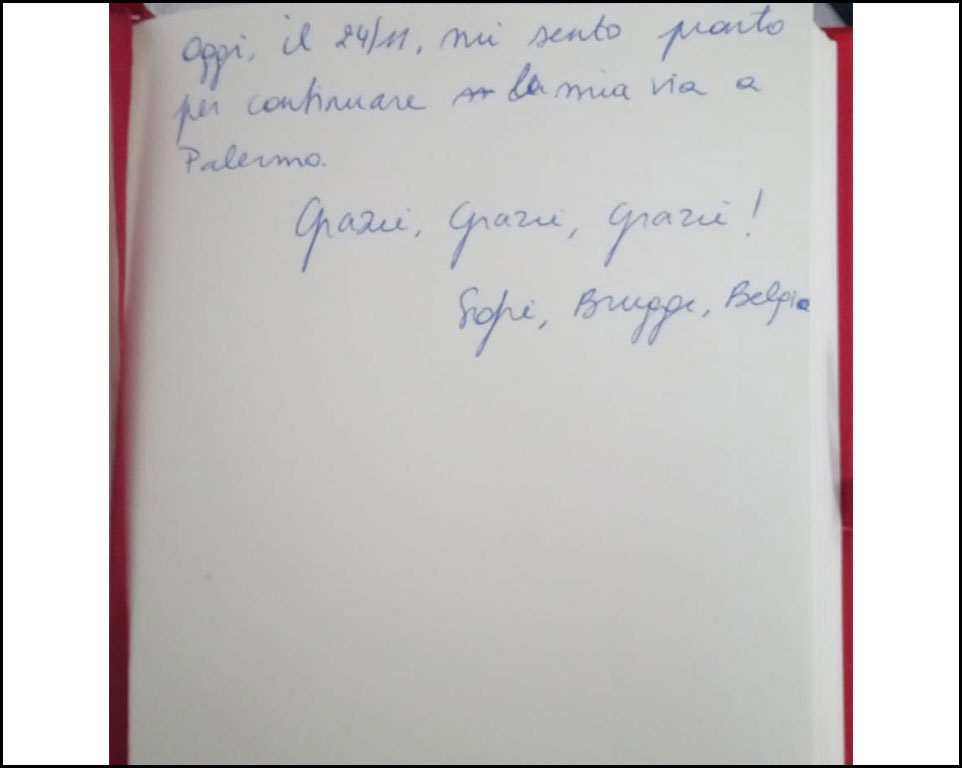 Oggi, il 24/11, mi sento pronto
per continuare la mia via a
Palermo.
Grazie, Grazie, Grazie!
Sofie, Brugge, Belgia